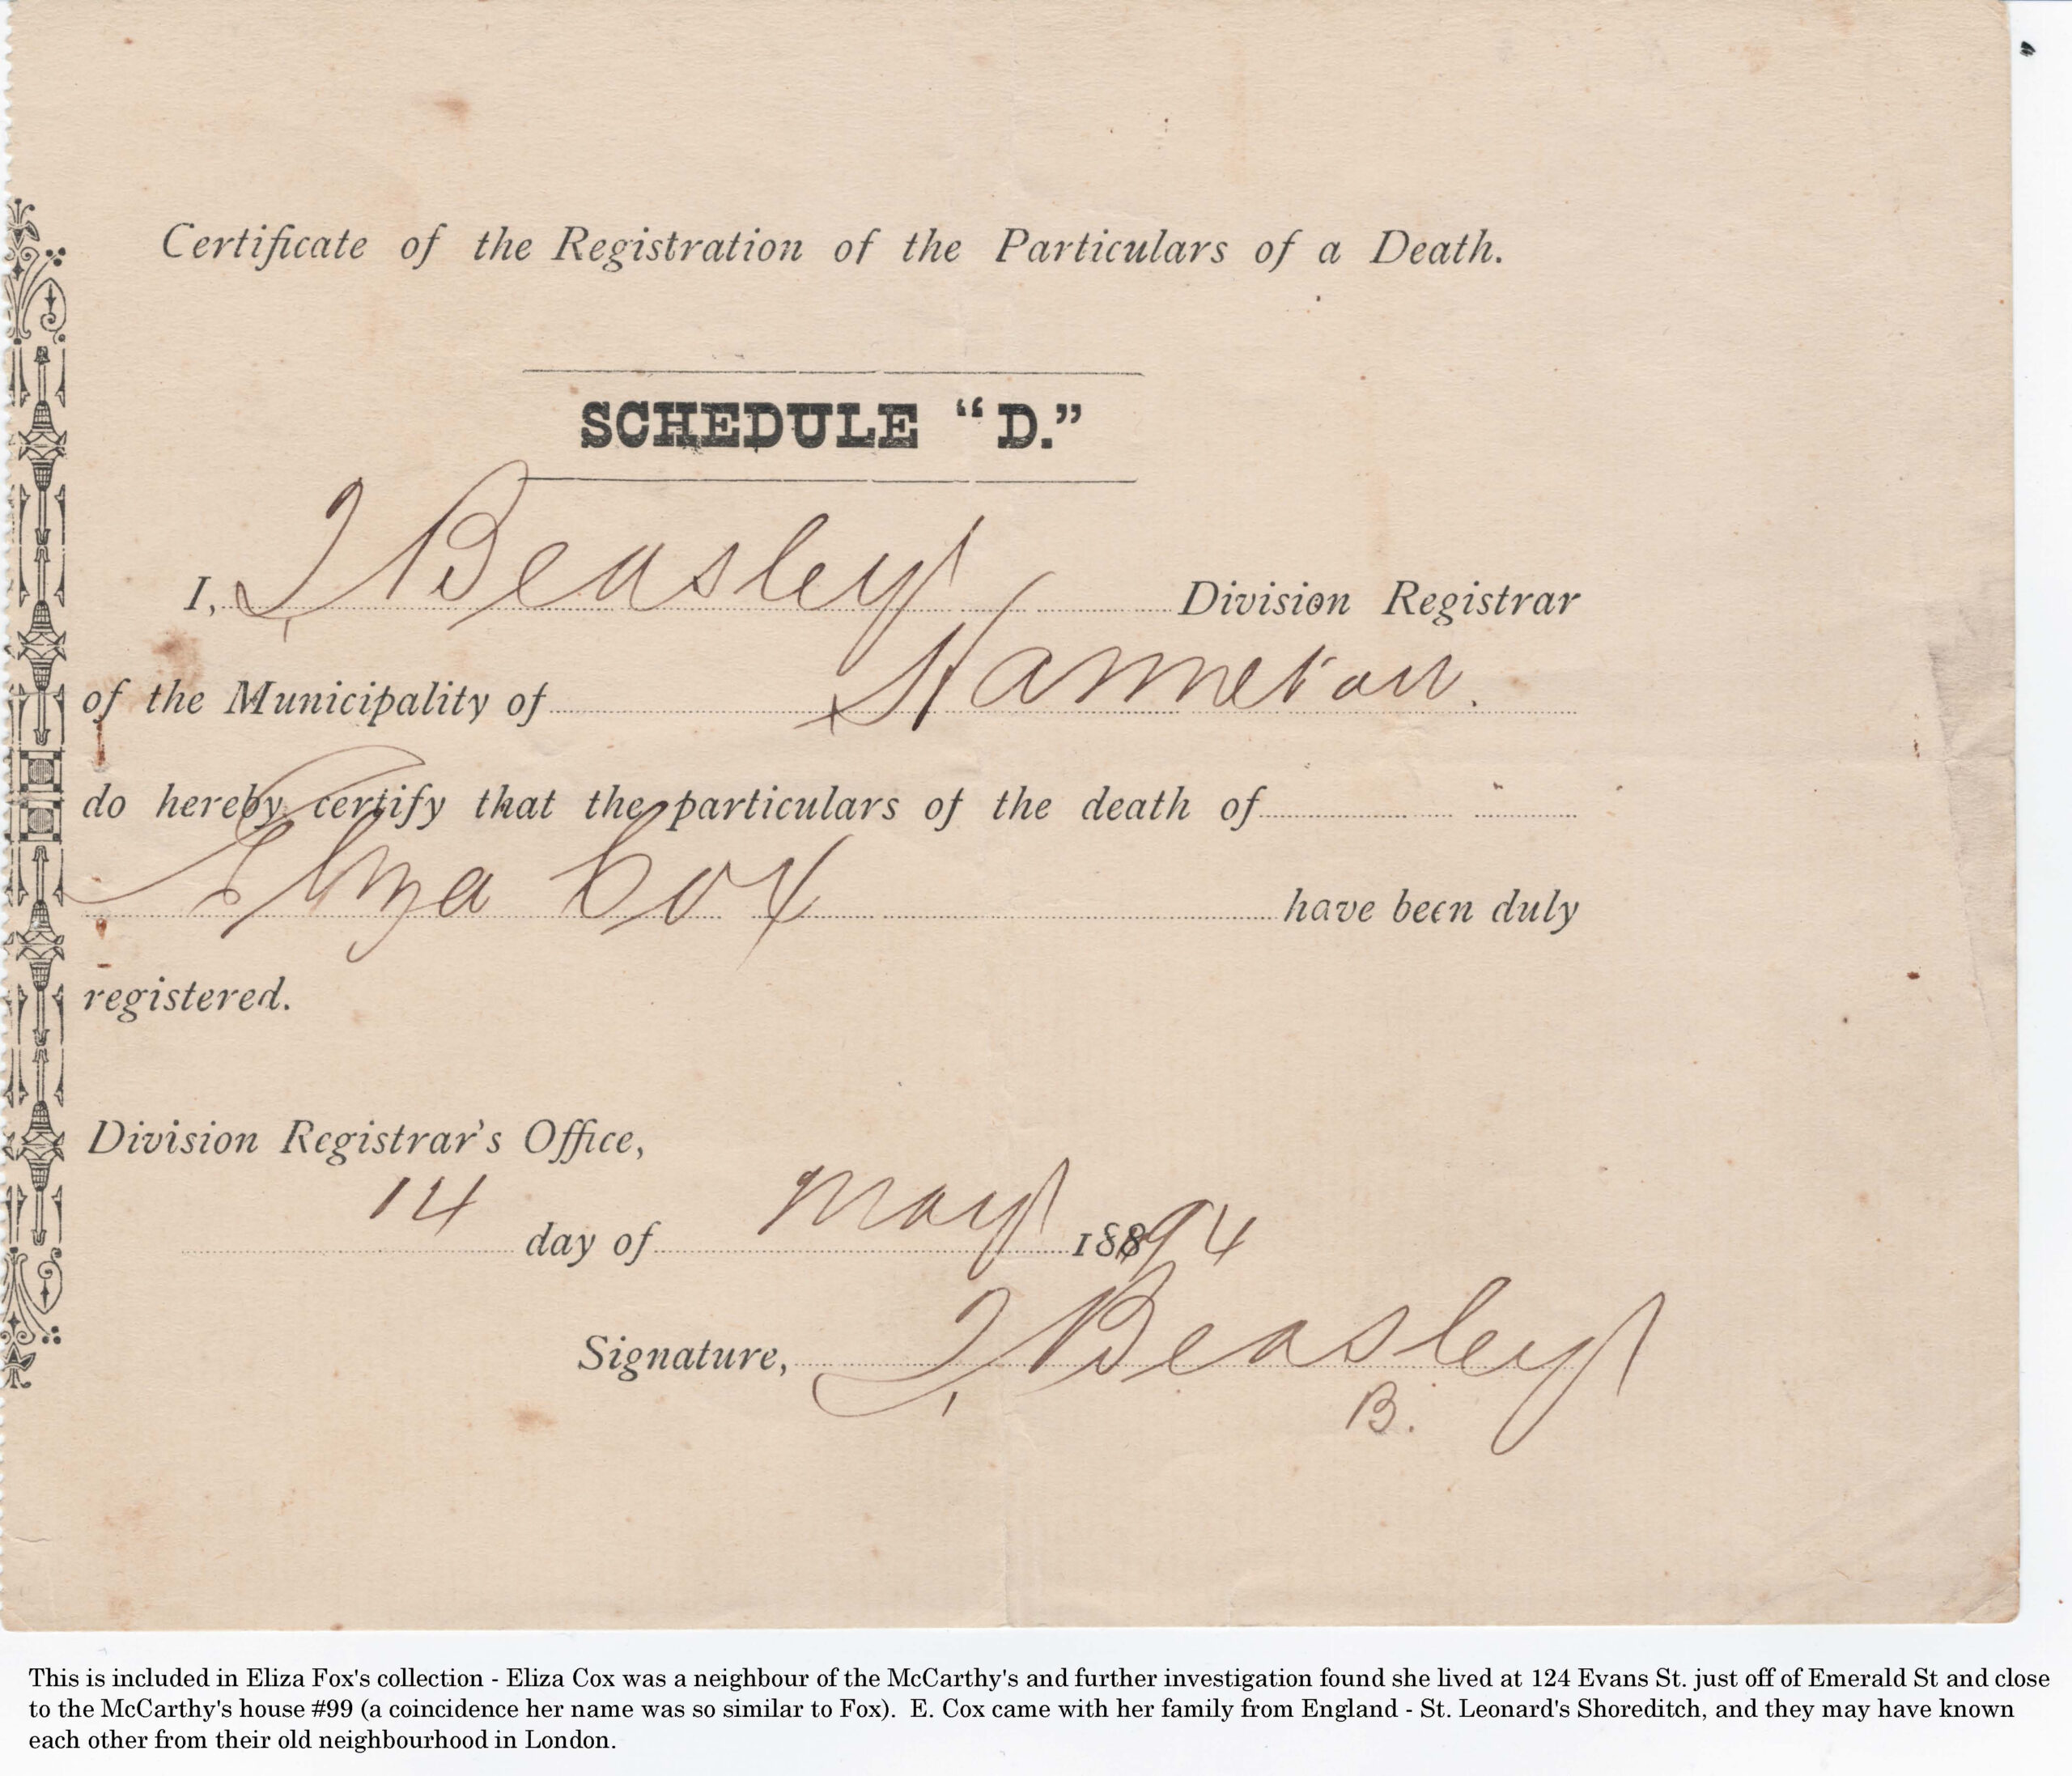 Certificate of the Registration of the Particulars of a Death.
SCHEDULE "D."
I, T Beasley Division Registrar
of the Municipality of Hamilton.
do hereby certify that the particulars of the death of
Eliza Cox have been duly
registered.
Division Registrar's Office,
14 day of May 18894
Signature, T Beasley
B.
This is included in Eliza Fox's collection - Eliza Cox was a neighbour of the McCarthy's and further investigation found she lived at 124 Evans St. just off of Emerald St and close
to the McCarthy's house #99 (a coincidence her name was so similar to Fox).  E. Cox came with her family from England - St. Leonard's Shoreditch, and they may have known
each other from their old neighbourhood in London.